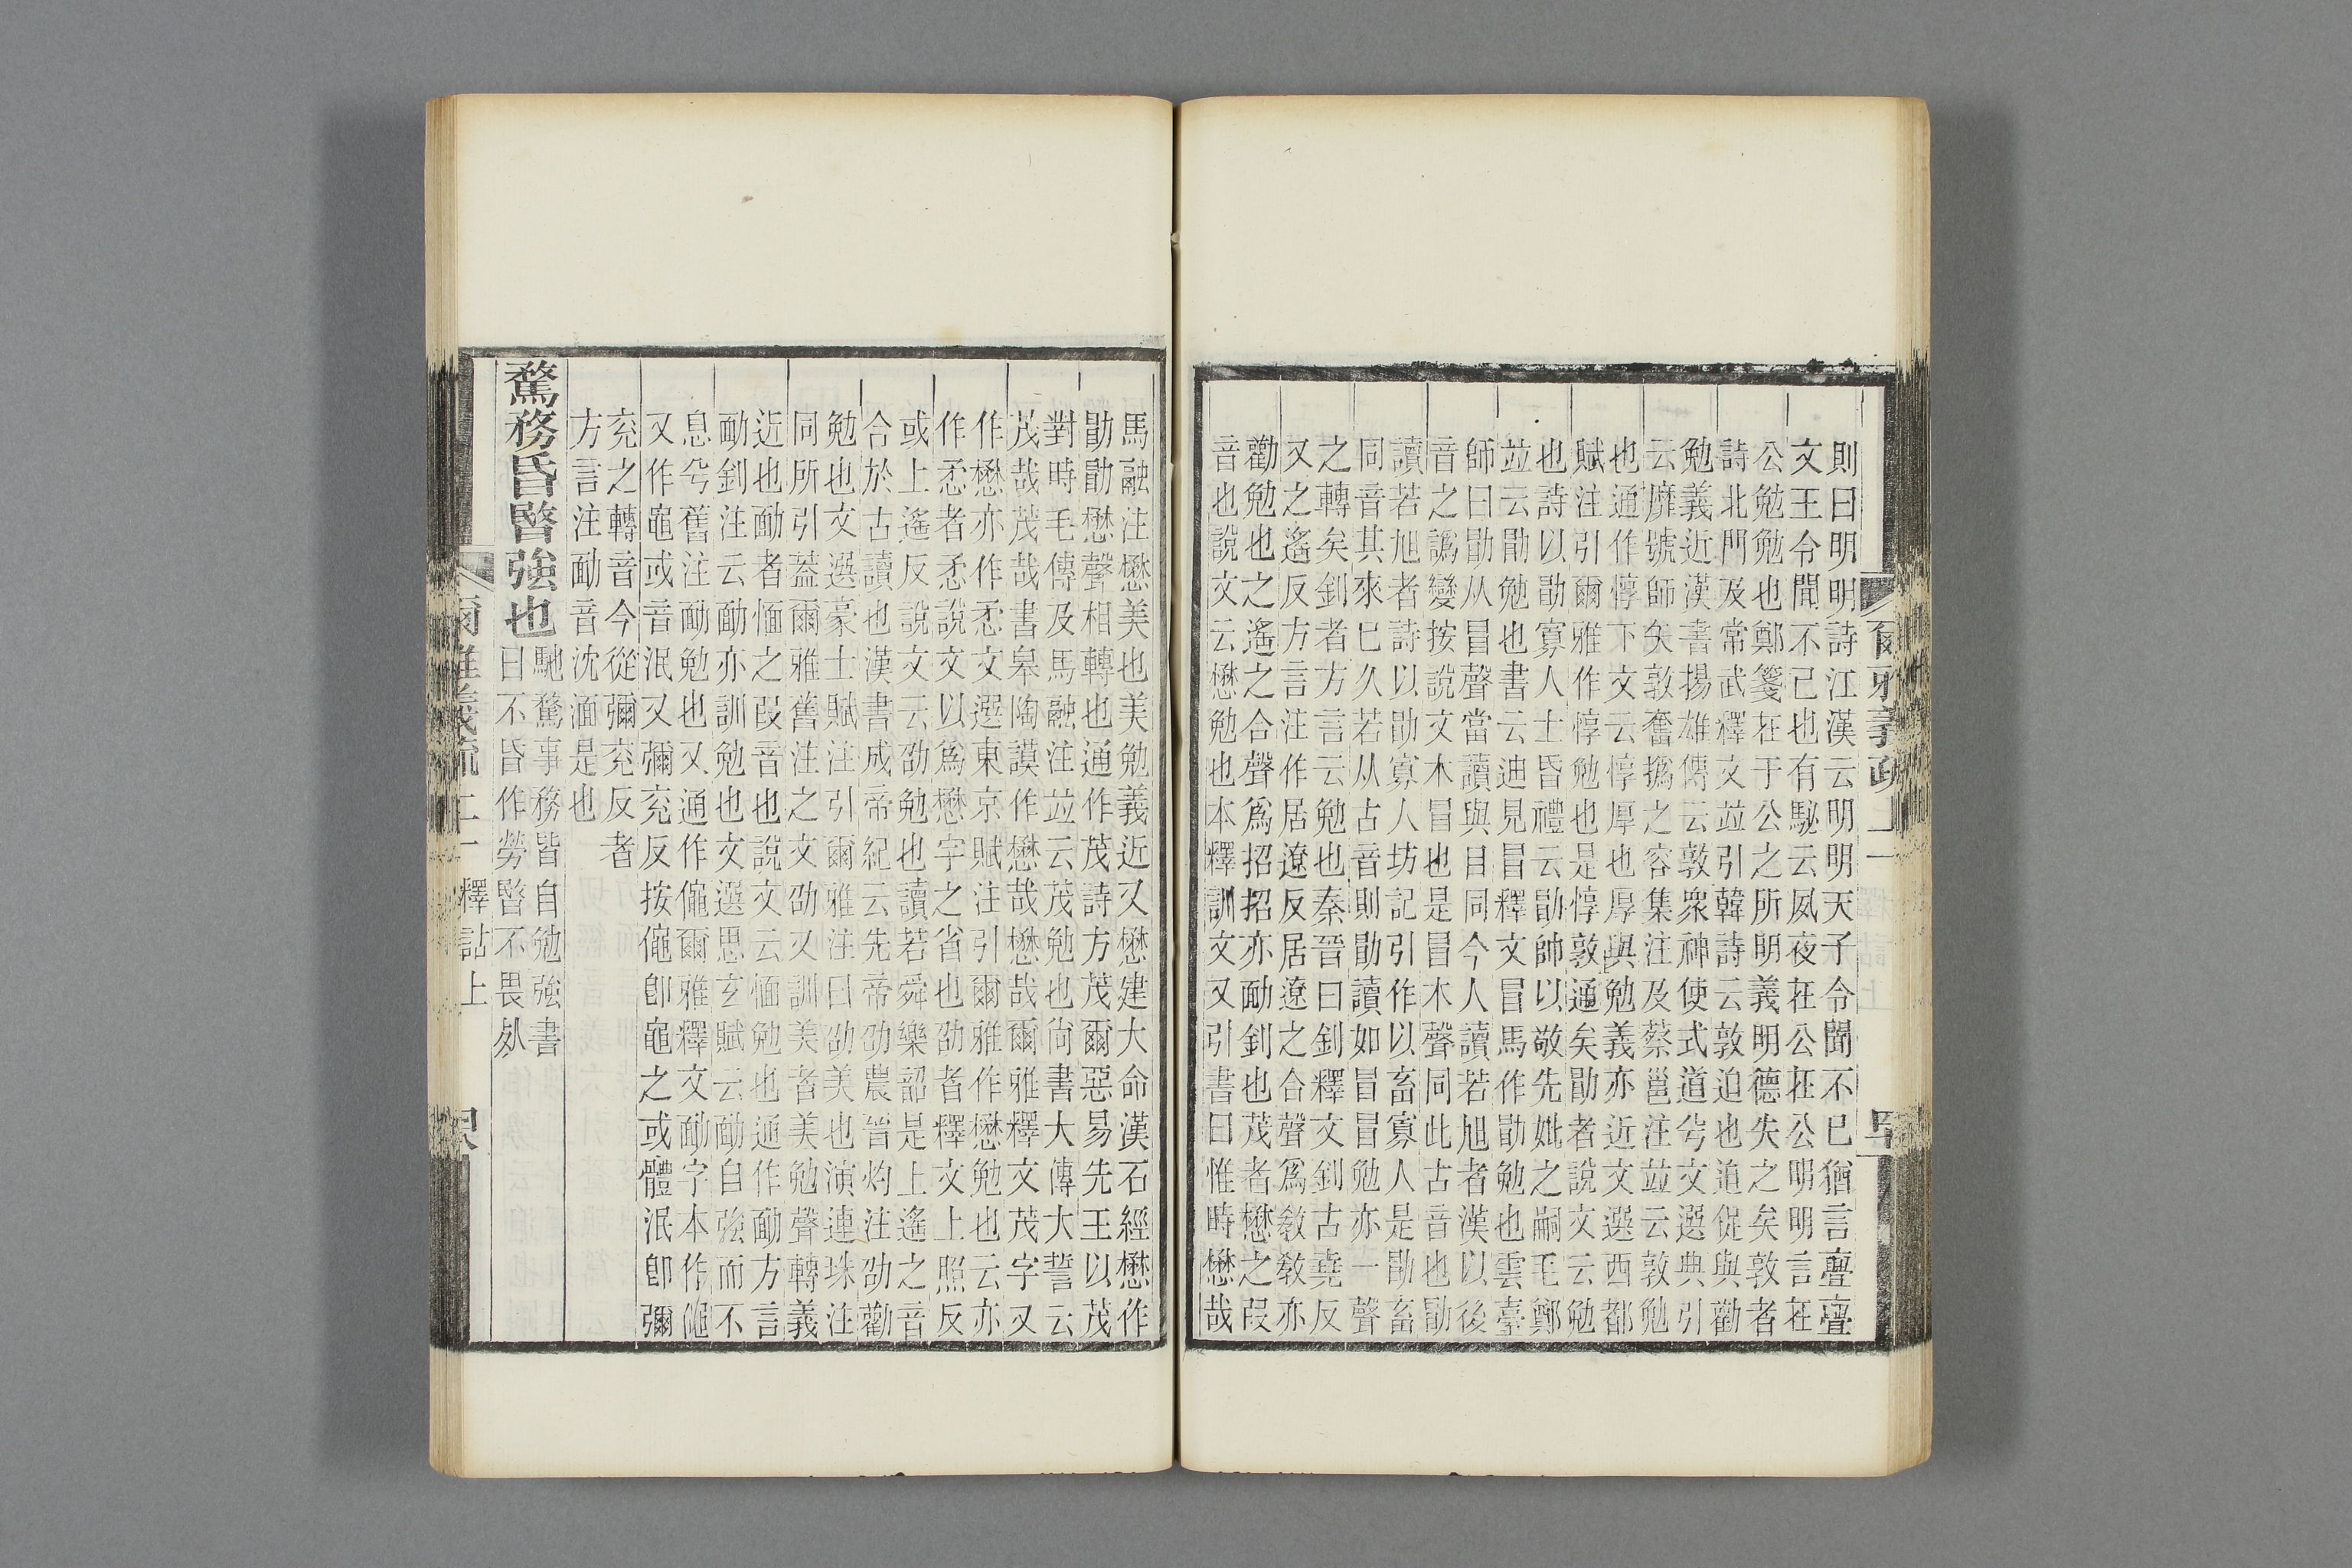 則曰明明詩江漢云明明天子令聞不已猶言亹亹
文王令聞不已也有駜云夙夜在公在公明明言在
公勉勉也鄭箋在于公之所明義明德失之矣敦者
詩北門及常武釋文竝引韓詩云敦迫也迫促與勸
勉義近漢書揚雄傳云敦衆神使式道兮文選典引
云靡號師矢敦奮撝之容集注及蔡邕注竝云敦勉
也通作惇下文云惇厚也厚與勉義亦近文選西都
賦注引爾雅作惇惇勉也是惇敦通矣勖者說文云勉
也詩以勖寡人士昏禮云勖帥以敬先妣之嗣毛鄭
竝云勖勉也書云迪見冒釋文冒馬作勖勉也雲臺
師曰勖从冒聲當讀與目同今人讀若旭者漢以後
音之譌變按說文木冒也是冒木聲同此古音也勖
讀若旭者詩以勖寡人坊記引作以畜寡人是勖畜
同音其來巳久若从古音則勖讀如冒冒勉亦一聲
之轉矣釗者方言云勉也秦晉曰釗釋文釗古堯反
又之遙反方言注作居遼反居遼之合聲爲敎敎亦
勸勉也之遙之合聲爲招招亦勔釗也茂者懋之叚
音也說文云懋勉也本釋訓文又引書曰惟時懋哉
馬融注懋美也美勉義近又懋建大命漢石經懋作
勖勖懋聲相轉也通作茂詩方茂爾惡易先王以茂
對時毛傳及馬融注竝云茂勉也尙書大傳大誓云
茂哉茂哉書皋陶謨作懋哉懋哉爾雅釋文茂字又
作懋亦作忞文選東京賦注引爾雅作懋勉也云亦
作忞者忞說文以爲懋字之省也劭者釋文上照反
或上遙反說文云劭勉也讀若舜樂韶是上遙之音
合於古讀也漢書成帝紀云先帝劭農晉灼注劭勸
勉也文選蒙士賦注引爾雅注曰劭美也演連珠注
同所引葢爾雅舊注之文劭又訓美者美勉聲轉義
近也勔者愐之叚音也說文云愐勉也通作勔方言
勔釗注云勔亦訓勉也文選思玄賦云勔自強而不
息兮舊注勔勉也又通作僶爾雅釋文勔字本作僶
又作黽或音泯又彌兖反按僶卽黽之或體泯卽彌
兖之轉音今從彌兖反者
方言注勔音沈湎是也
騖務昏暋強也馳騖事務皆自勉強書
曰不昏作勞暋不畏𣦸
爾雅義疏 上一 釋詁上